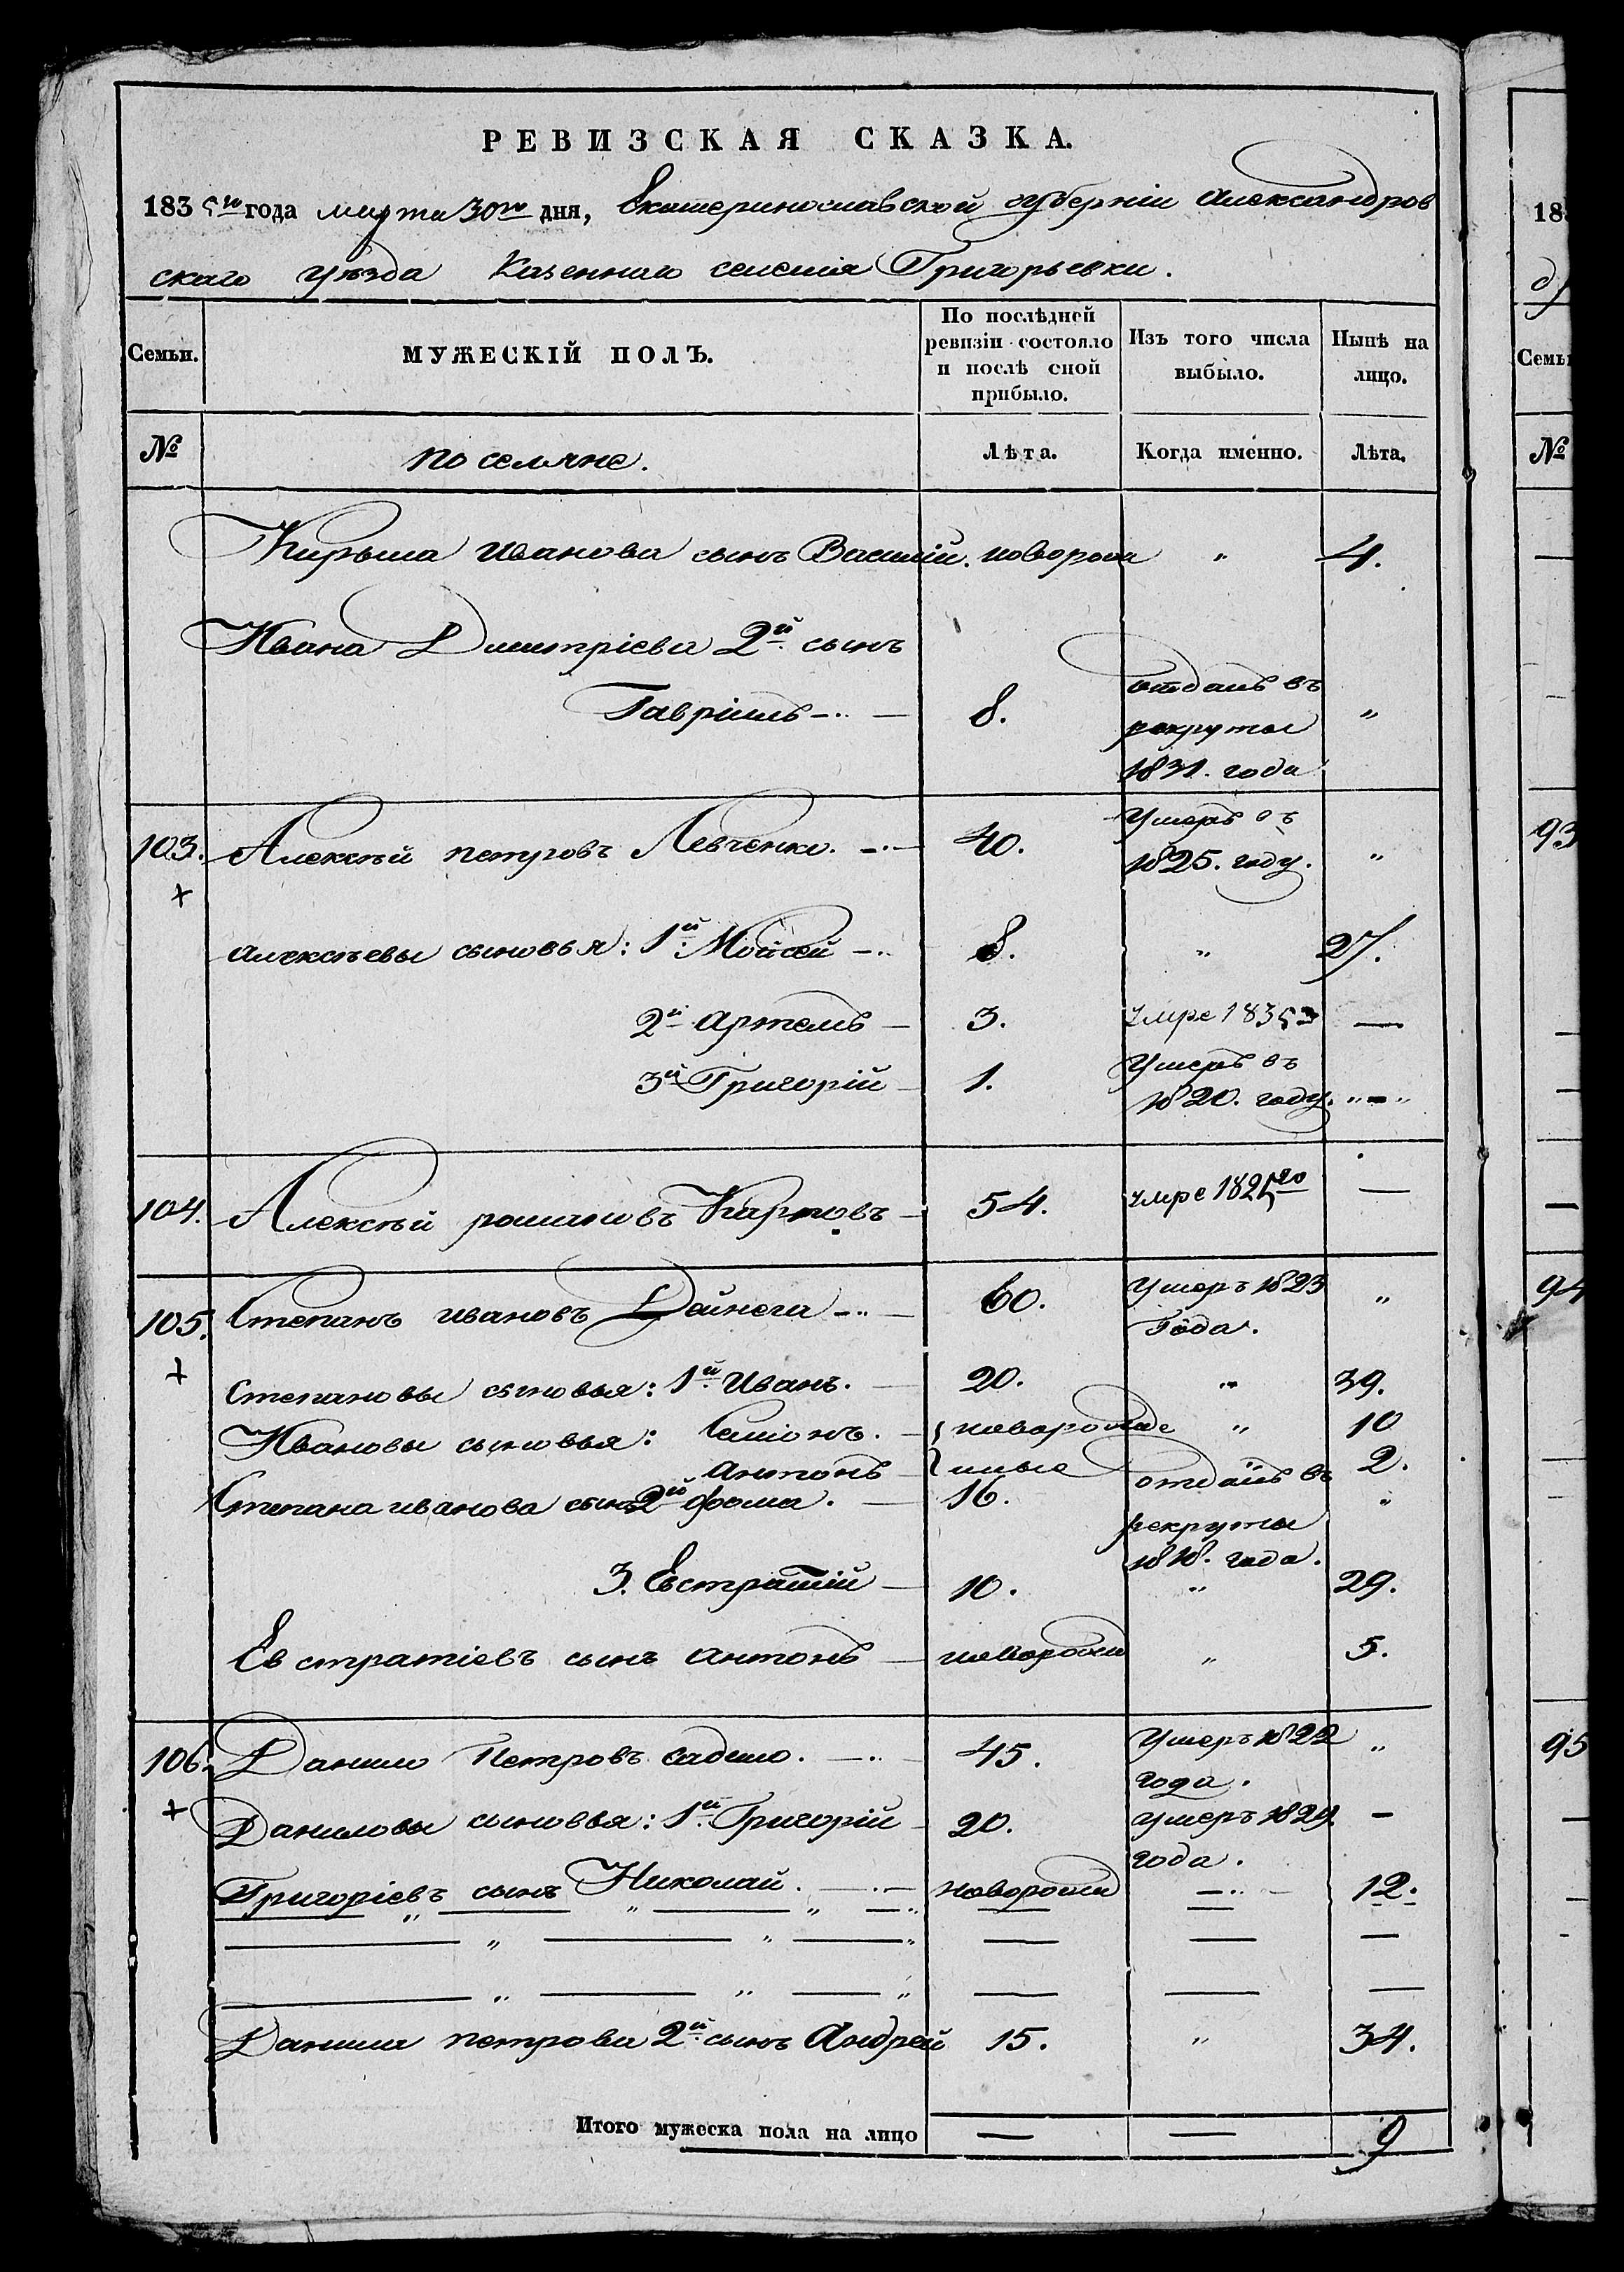 РЕВИЗСКАЯ СКАЗКА.
1835го года марта 30го дня, Екатеринославской губерніи Александров
скаго уѣзда Казеннаго селенія Григорьевки.
Семьи. МУЖЕСКІЙ ПОЛЪ. По послѣдней ревизіи состояло и послѣ оной прибыло. Изъ того числа выбыло. Нынѣ на лицо.
№ поселяне. Лѣта. Когда именно. Лѣта.
Кирыла Иванова сынъ Василій. новорож „ 4.
Ивана Дмитріева 2й сынъ
Гавріилъ 8. отданъ въ рекруты 1831. года „
103. Алексѣй петровъ Левченко. 40. Умеръ въ 1825. году. „
+
алексѣевы сыновья: 1й Мойсей 8. „ 27.
2й артемъ 3. умре 1835 —
3й Григорій 1. Умеръ въ 1820. году. „-„
104. Алексѣй романовъ Карповъ 54. умре 1825го —
105. Степанъ ивановъ Дейнега 60. Умеръ 1823 Года. „
+
Степановы сыновья: 1й Иванъ. 20. „ 39.
Ивановы сыновья: Семіонъ. новорожде „ 10
антонъ нные 2.
Степана иванова сынъ 2й фома. 16. отданъ въ рекруты 1818. года. „
3. Евстратій 10. „ 29.
Евстратіевъ сынъ антонъ новорожд „ 5.
106. Данило Петровъ садило. 45. Умеръ 1822 года. „
+
Даниловы сыновья: 1й Григорій 20. умеръ 1829. года. -
Григоріевъ сынъ Николай. новорожд — 12.
Данила петрова 2й сынъ Андрей 15. „ 34.
Итого мужеска пола на лицо — — 9
18
д
Семьи
№
93
94
95